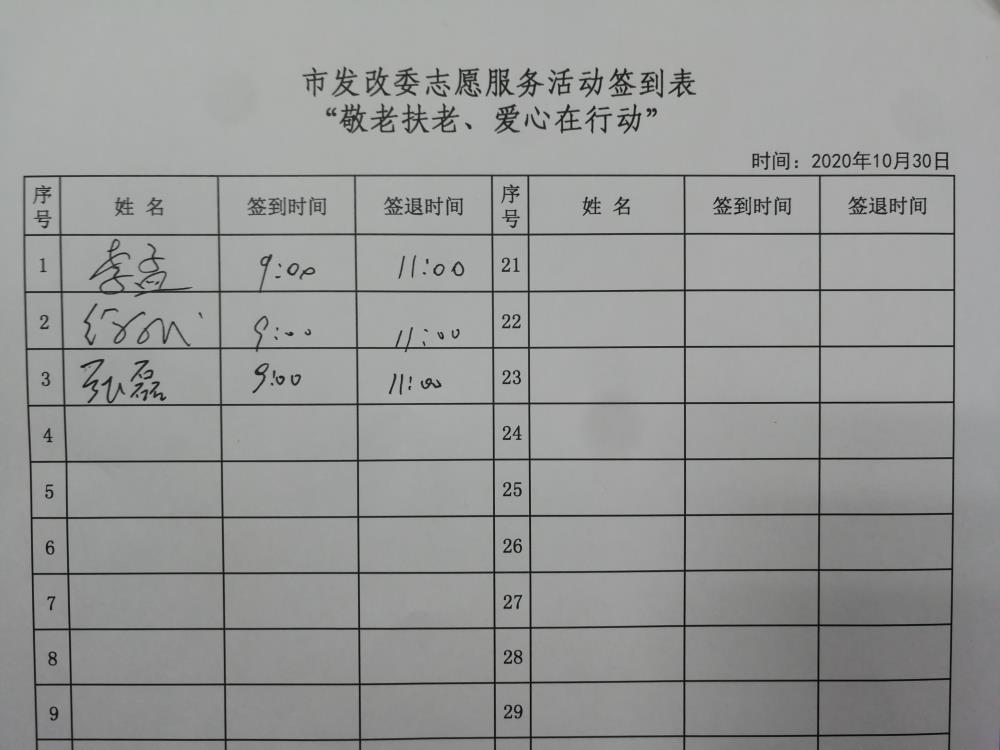 市发改委志愿服务活动签到表
“敬老扶老、爱心在行动”
时间：2020年10月30日
序号 姓 名 签到时间 签退时间 序号 姓 名 签到时间 签退时间
1 李孟 9:00 11:00 21
2 9:00 11:00 22
3 张磊 9:00 11:00 23
4 24
5 25
6 26
7 27
8 28
9 29